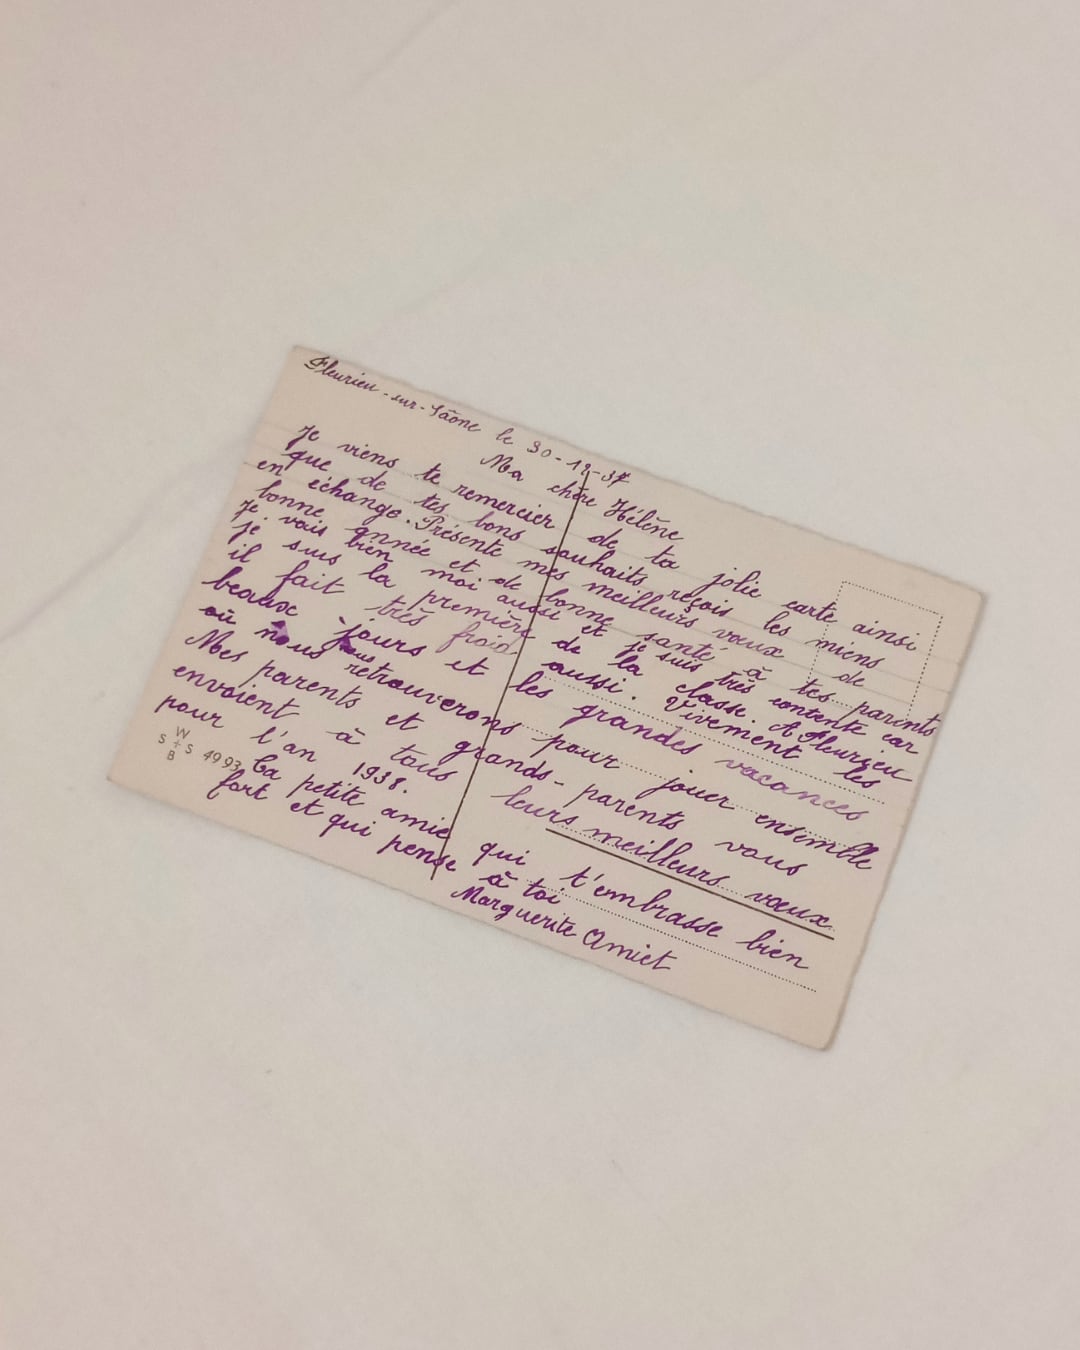 Fleurieu-sur-Saône le 30-12-37
Ma chère Hélène
Je viens te remercier de ta jolie carte ainsi
que de tes bons souhaits reçois les miens
en échange. Présente mes meilleurs vœux de
bonne année et de bonne santé à tes parents
Je vais bien moi aussi et je suis très contente car
je suis la première de la classe. A Fleurieu
il fait très froid aussi. Vivement les
beaux jours et les grandes vacances
où nous nous retrouverons pour jouer ensemble
Mes parents et grands-parents vous
envoient à tous leurs meilleurs vœux
pour l'an 1938.
Ta petite amie qui t'embrasse bien
fort et qui pense à toi
Marguerite Amiet
W
S + S 4993
B